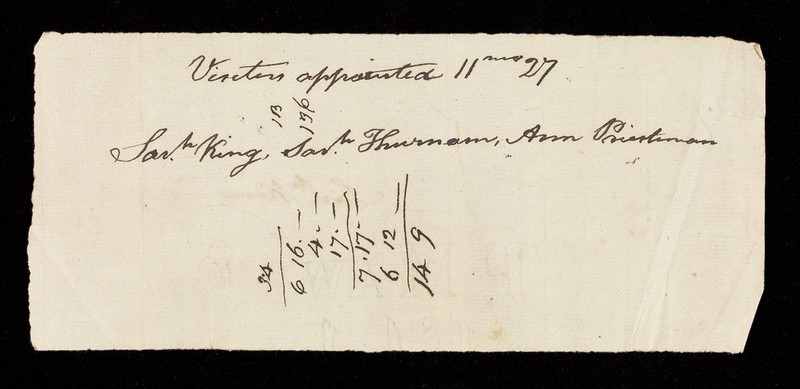 Visitors appointed 11mo 27
Sarh. King, Sarh Thurnam, Ann Priestman
1B
196
34
6 16. —
4. —
17. —
7. 17. —
6 12 —
14 9